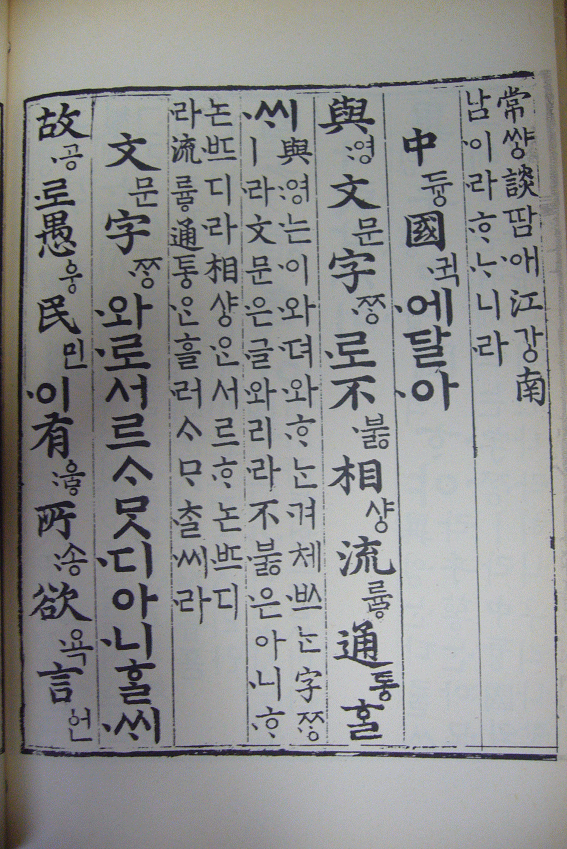 常썅談땀애江강南
남이라ᄒᆞᄂᆞ니라
中듕國귁에달아
與영文문字ᄍᆞᆼ로不부ᇙ相샹流류ᇢ通토ᇰᄒᆞᆯ
ᄊᆡ
與영는이와뎌와ᄒᆞᄂᆞᆫ겨체ᄡᅳ는字ᄍᆞᆼ
ㅣ라文문은글와리라不부ᇙ은아니ᄒᆞ
논ᄠᅳ디라相샤ᇰᄋᆞᆫ서르ᄒᆞ논ᄠᅳ디
라流류ᇢ通토ᇰᄋᆞᆫ흘러ᄉᆞᄆᆞᄎᆞᆯ씨라
文문字ᄍᆞᆼ와로서르ᄉᆞᄆᆞᆺ디아니ᄒᆞᆯᄊᆡ
故공로愚ᅌᅮᆼ民민이有우ᇢ所송欲욕言언